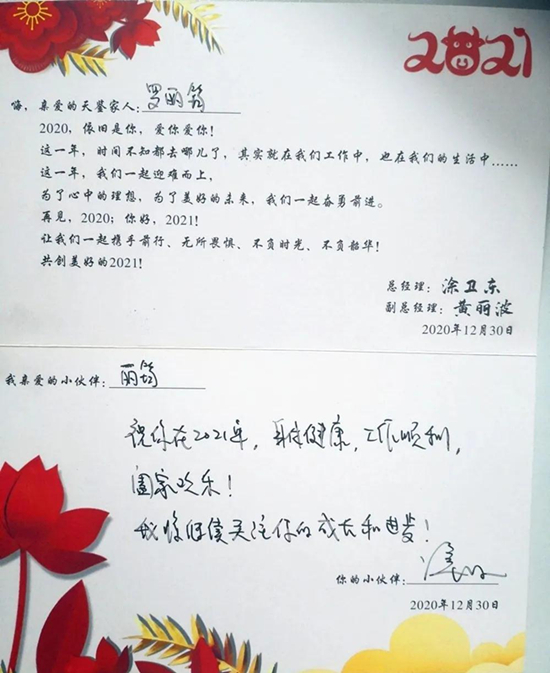 2021
嗨，亲爱的天鉴家人：罗丽筠
2020，依旧是你，爱你爱你！
这一年，时间不知都去哪儿了，其实就在我们工作中，也在我们的生活中……
这一年，我们一起迎难而上，
为了心中的理想，为了美好的未来，我们一起奋勇前进。
再见，2020；你好，2021！
让我们一起携手前行、无所畏惧、不负时光、不负韶华！
共创美好的2021！
总经理：涂卫东
副总经理：黄丽波
2020年12月30日
我亲爱的小伙伴：丽筠
祝你在2021年，身体健康，工作顺利，
阖家欢乐！
我将继续关注你的成长和
你的小伙伴：
2020年12月30日